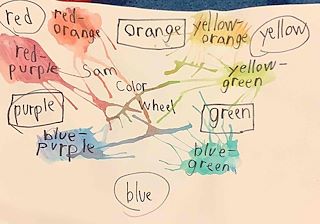 red
red-
orange
orange
yellow-
orange
yellow
red-
purple
Sam
Color
wheel
yellow-
green
purple
green
blue-
purple
blue-
green
blue